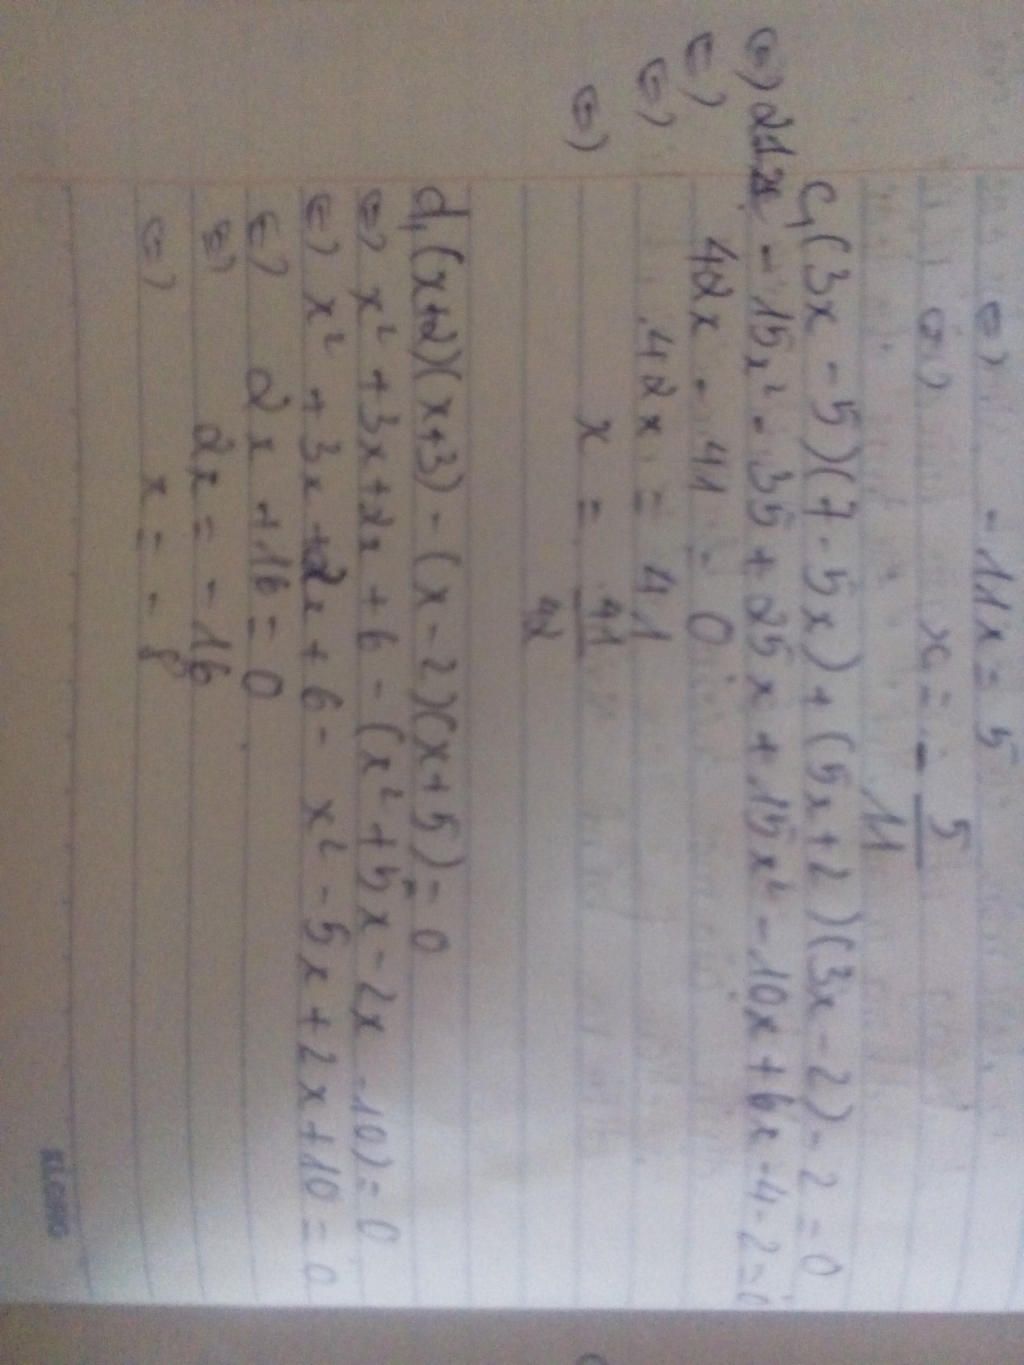 ⇔) - 11x = 5
⇔) x = - 5/11
c, (3x - 5)(7 - 5x) + (5x + 2)(3x - 2) - 2 = 0
⇔) 21x - 15x² - 35 + 25x + 15x² - 10x + 6x - 4 - 2 = 0
⇔) 42x - 41 = 0
⇔) 42x = 41
⇔) x = 41/42
d, (x+2)(x+3) - (x - 2)(x + 5) = 0
⇔) x² + 3x + 2x + 6 - (x² + 5x - 2x - 10) = 0
⇔) x² + 3x + 2x + 6 - x² - 5x + 2x + 10 = 0
⇔) 2x + 16 = 0
⇔) 2x = - 16
⇔) x = - 8
KLONG